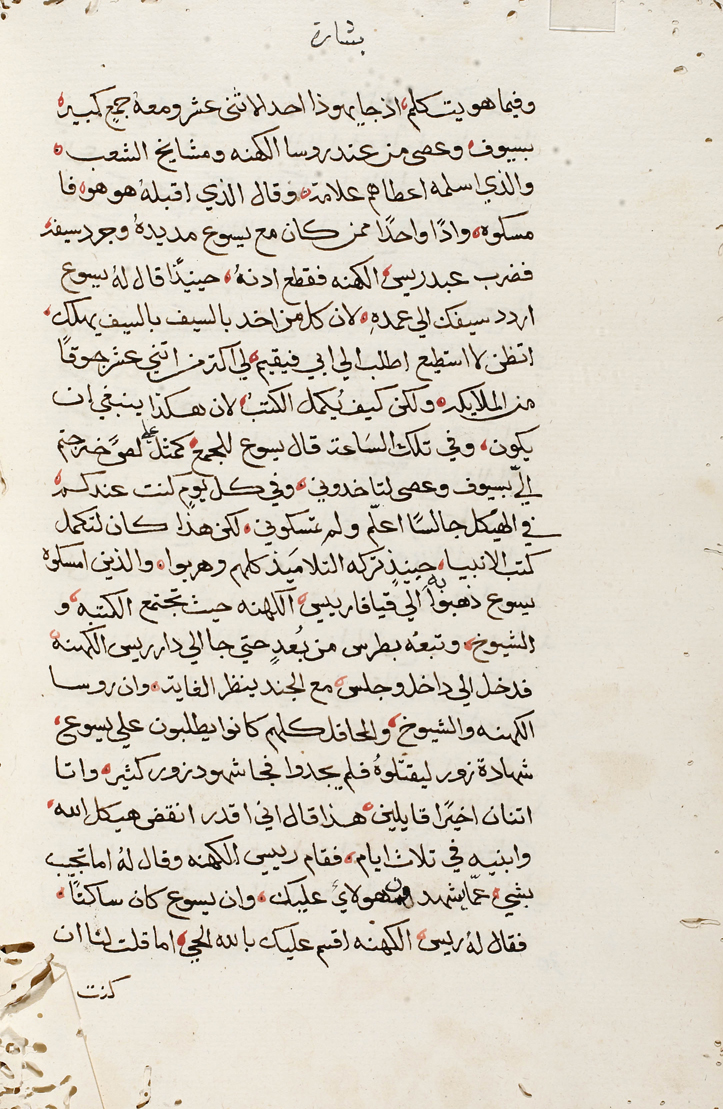 بشارة
وفيما هو يتكلم، اذ جا يهوذا احد الاثنى عشر ومعهُ جمع كبير،
بسيوف، وعصى من عند روسا الكهنه ومشايخ الشعب،
والذي اسلمه اعطاهم علامة، وقال الذي اقبلهُ هو هو، فا
مسكوه، واذا واحدًا ممن كان مع يسوع مد يدهُ وجرد سيفهُ،
فضرب عبد ريس، الكهنه فقطع ادنهُ، حينيذًا قال لهُ يسوع
اردد سيفك الي عمدهِ، لان كل من اخد بالسيف بالسيف يهلك،
اتظن لا استطيع اطلب الي ابي فيقيم، لي اكتر من اتني عشر جوقًا
من الملايكه، ولكن كيف يُكمل الكتبُ، لان هكذا ينبغي ان
يكون، وفي تلك السَاعة قال يسوع للجمع، كمثل علي لصٍّ خرجتم
اليّ بسيوف وعصى لتاخدوني، وفي كل يومٍ كنت عندكم،
في الهيكل جالسًا اعلّم ولم تمسكوني، لكن هذا كان لتكمل
كتب الانبيا، حينيذٍ تركه التلاميذ كلهم وهربوا، والذين امسكوا
يسوع ذهبوا به الي قيافا ريس، الكهنه حيث تجتمع الكتبه، و
الشيوخ، وتبعهُ بطرس من بُعدٍ حتي جا الي دار ريس الكهنه،
فدخل الي داخل وجلس، مع الجند ينظر الغاية، وان روسا
الكهنه والشيوخ، والمحافل كلهم كانوا يطلبون علي يسوع،
شهادة زور ليقتلوهُ فلم يجدوا فجا شهود زور كثير، واتا
اتنان اخيرًا قايلين، هذا قال اني اقدر انقض هيكل الله،
وابنيه في تلاث ايام، فقام رييس الكهنه وقال لهُ اما تجيب
بشي، عمّا يشهدون هولايٓ عليك، وان يسوع كان ساكتًا،
فقال لهُ ريس، الكهنه اقسم عليك بالله الحي، اما قلت لنا ان
كنت